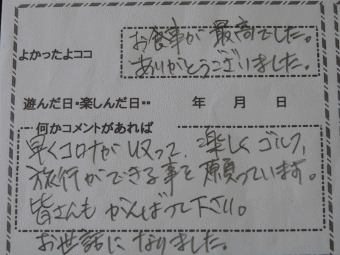 お食事が最高でした。
よかったよココ
ありがとうございました。
遊んだ日・楽しんだ日・・ 年 月 日
何かコメントがあれば
早くコロナが収って、楽しくゴルフ、
旅行ができる事を願っています。
皆さんもがんばって下さい。
お世話になりました。